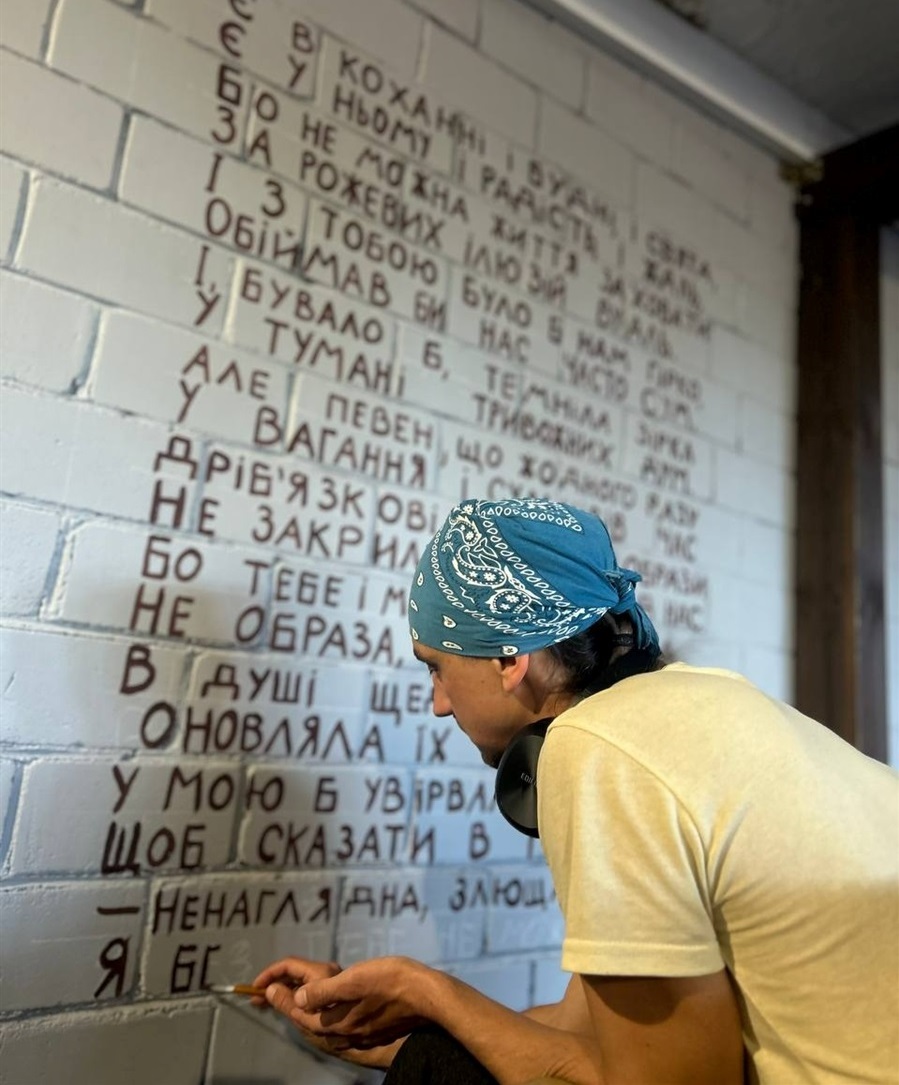 Є В КОХАННІ І БУДНІ, І СВЯТА,
Є У НЬОМУ І РАДІСТЬ, І ЖАЛЬ,
БО НЕ МОЖНА ЖИТТЯ ЗАХОВАТИ
ЗА РОЖЕВИХ ІЛЮЗІЙ ВУАЛЬ.
І З ТОБОЮ БУЛО Б НАМ ГІРКО,
ОБІЙМАВ БИ НАС ЧАСТО СУМ,
І, БУВАЛО Б, ТЕМНІЛА ЗІРКА
У ТУМАНІ ТРИВОЖНИХ ДУМ.
АЛЕ ПЕВЕН, ЩО ЖОДНОГО РАЗУ
У ВАГАННЯ І ЧАС
ДРІБ'ЯЗКОВІ
НЕ НАС
БО ТЕБЕ І
НЕ ОБРАЗА,
В ДУШІ
ОНОВЛЯЛА ЇХ
У МОЮ Б
ЩОБ СКАЗАТИ В
— НЕНАГЛЯДНА,
Я